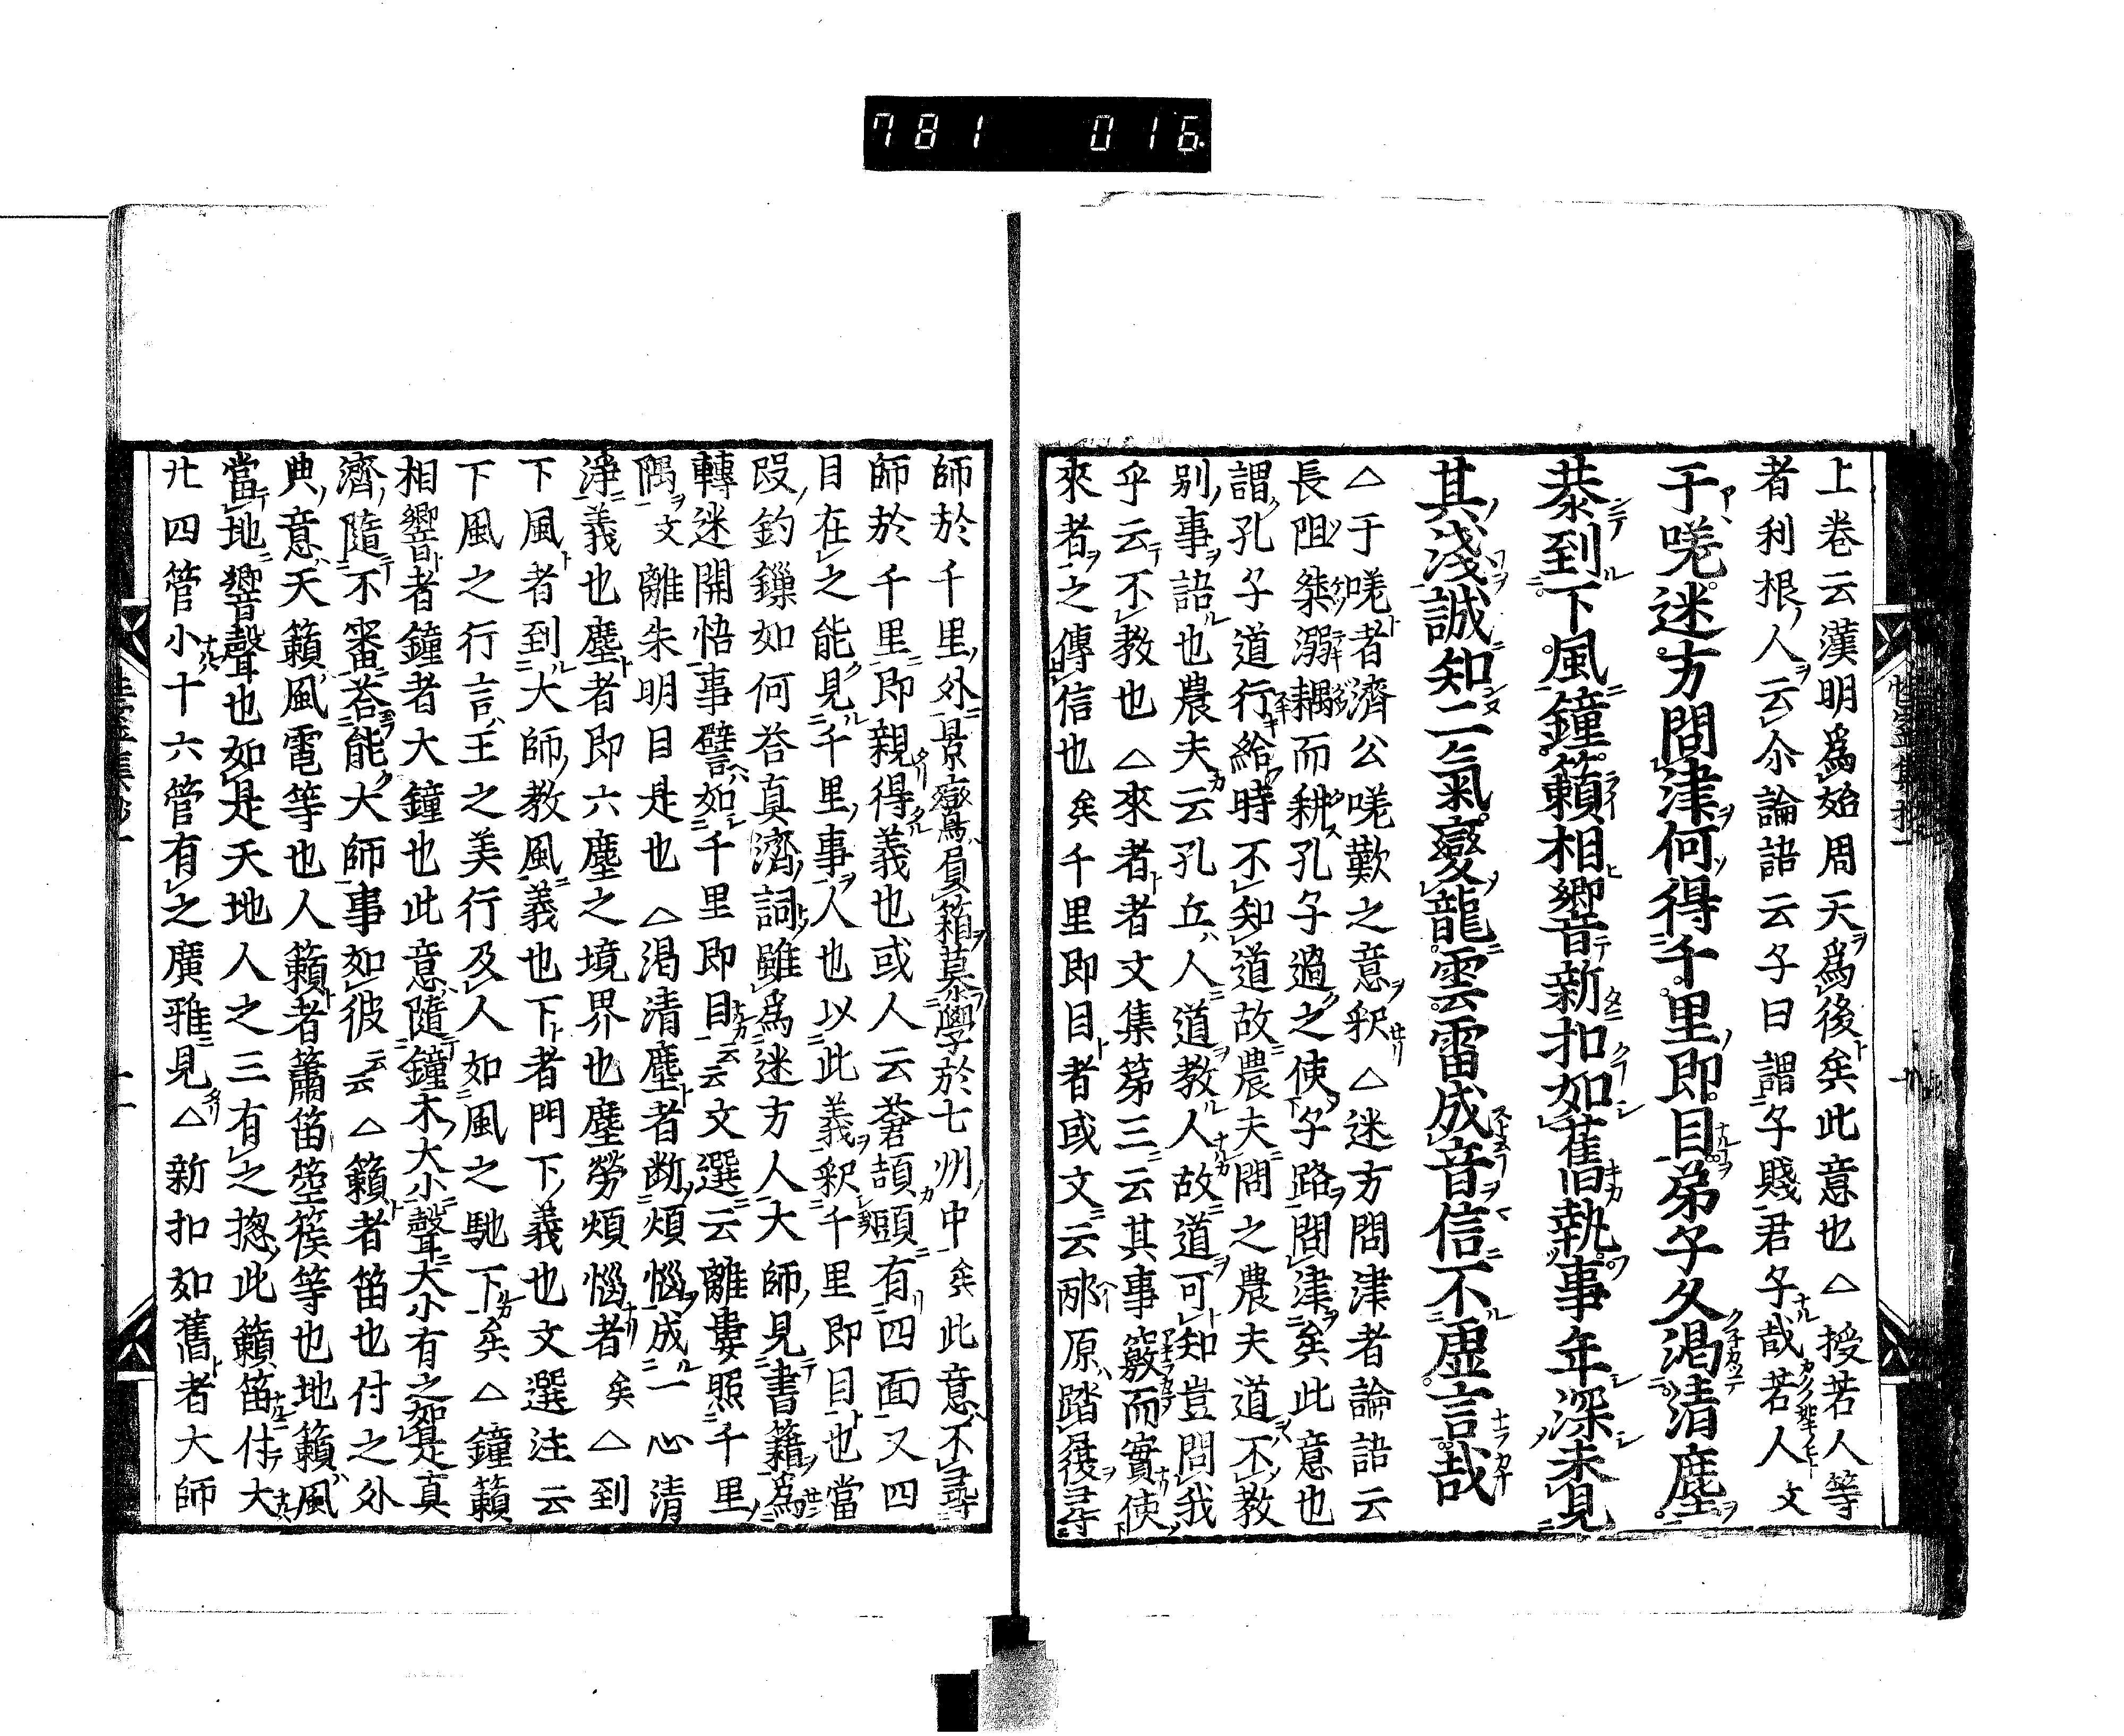 781 016
上卷云漢明爲始周天爲後矣此意也△授若人等
者利根人云尒論語云子曰謂子賤君子哉若人文
于嗟迷方問津何得千里即目弟子久渇清塵
恭到下風鐘籟相響音新扣如舊執事年深未見
其淺誠知二氣變龍雲雷成音信不虛言哉
△于嗟者濟公嗟歎之意釈△迷方問津者論語云
長阻桀溺耦而耕孔子過之使子路問津矣此意也
謂孔子道行給時不知道故農夫問之農夫道不教
別事語也農夫云孔丘人道教人故道可知豈問我
乎云不教也△來者者文集第三云其事竅而實使
來者之傳信也矣千里即目者或文云邴原踏屐尋
師於千里外景鸞負箱慕學於七州中矣此意不尋
師於千里即親得義也或人云蒼頡頭有四面又四
目在之能見千里事人也以此義釈千里即目也當
段釣鏁如何荅真濟詞雖爲迷方人大師見書籍爲
轉迷開悟事譬如千里即目云云文選云離婁照千里
隅文離朱明目是也△渇清塵者断煩惱成一心清
淨義也塵者即六塵之境界也塵勞煩惱者矣△到
下風者到大師教風義也下者門下義也文選注云
下風之行言王之美行及人如風之馳下矣△鐘籟
相響者鐘者大鐘也此意隨鐘木大小聲大小有之如是真
濟隨不審荅能大師事如彼云云△籟者笛也付之外
典意天籟風電等也人籟者簫笛箜篌等也地籟風
當地響聲也如是天地人之三有之捴此籟笛付大
廿四管小十六管有之廣雅見△新扣如舊者大師